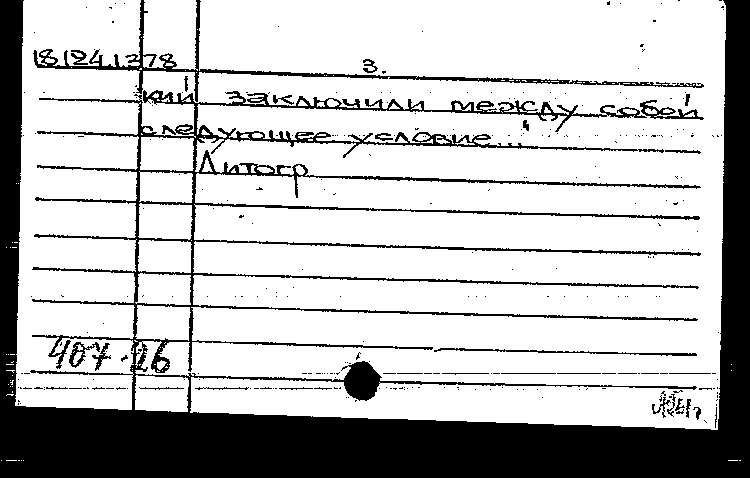 18124.1.378
3.
кий заключили между собой
следующее условие..."
Литогр
407-26